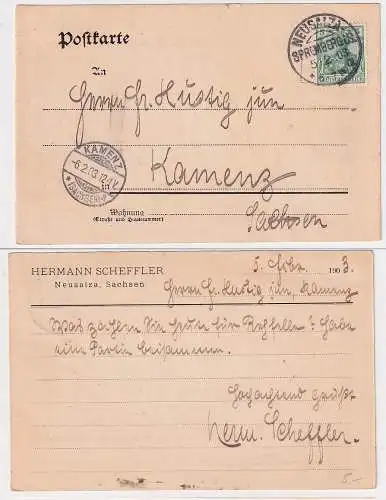 Postkarte
NEUSALZA-
SPREMBERG
An
Herrn Fr. Hustig jun
KAMENZ
-6.2.03.12-1V.
*(SACHSEN)*
Kamenz
Wohnung
(Straße und Hausnummer)
Sachsen
HERMANN SCHEFFLER
Neusalza, Sachsen
5. Febr. 1903.
Herrn Fr. Hustig jun, Kamenz
Was zahlen Sie heute für Rehfelle? Habe
eine Partie beisammen.
Hochachtend grüßt
Herm. Scheffler.
5.-